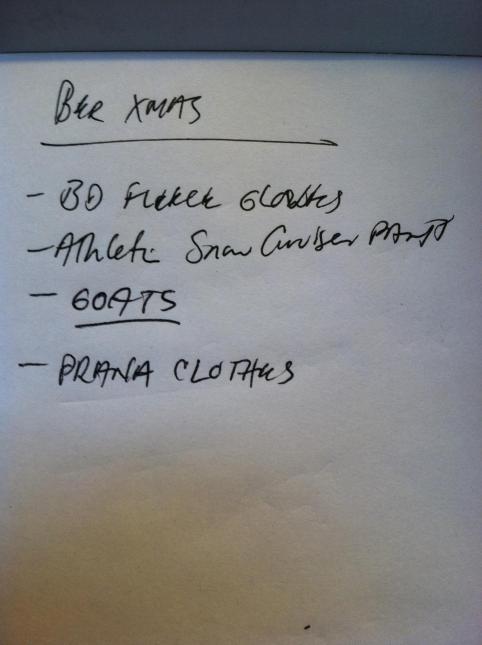 BER XMAS
- BD GLOVES
- Athleti Snow Cruiser PANT
- GOATS
- PRANA CLOTHES